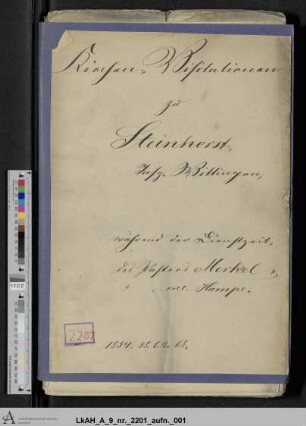 Kirchen-Visitationen
zu
Steinhorst,
Insp. Wittingen,
während der Dienstzeit
des Pastors Merkel
Hampe.
2201
1854. 58. 62. 68.
LkAH_A_9_nr._2201_aufn._001